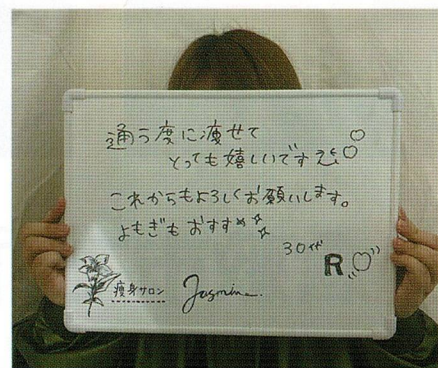 通う度に痩せて
とっても嬉しいです
これからもよろしくお願いします。
よもぎもおすすめ☆☆
30代
R
痩身サロン Jasmine